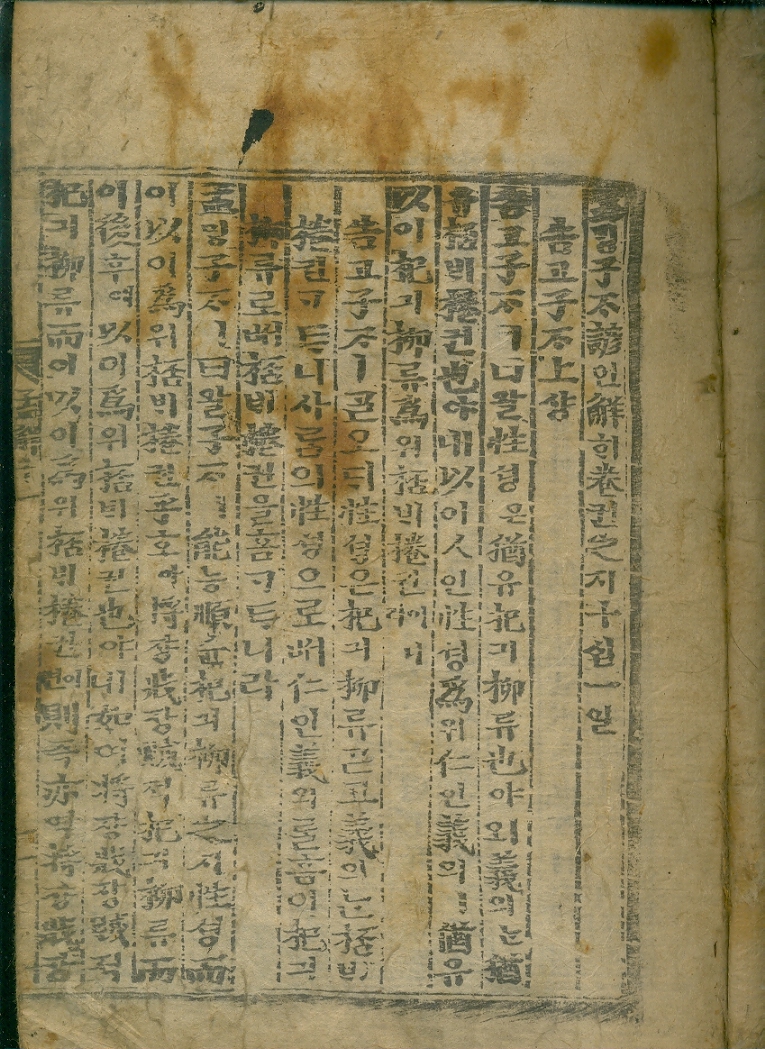 孟ᄆᆡᆼ子ᄌᆞ諺언解ᄒᆡ卷권之지十십一일
告고子ᄌᆞ上샹
告고子ᄌᆞㅣ ᄀᆞᆯ왈性셩은猶유杞긔柳류也야오義의ᄂᆞᆫ猶
유桮ᄇᆡ棬권也야ㅣ니以이人인性셩爲위仁인義의ㅣ猶유
以이杞긔柳류爲위桮ᄇᆡ棬권이니라
告고子ᄌᆞㅣ ᄀᆞᆯ오ᄃᆡ性셩은杞긔柳류ᄀᆞᆮ고義의ᄂᆞᆫ桮ᄇᆡ
棬권ᄀᆞᄐᆞ니사ᄅᆞᆷ의性셩으로ᄡᅥ仁인義의ᄅᆞᆯ홈이杞긔
柳류로ᄡᅥ桮ᄇᆡ棬권을홈ᄀᆞᄐᆞ니라
孟ᄆᆡᆼ子ᄌᆞㅣ曰왈子ᄌᆞㅣ能능順슌杞긔柳류之지性셩而
이以이爲위桮ᄇᆡ棬권乎호아將쟝戕쟝賊적杞긔柳류而
이後후에以이爲위桮ᄇᆡ棬권也야ㅣ니如여將쟝戕쟝賊적
杞긔柳류而이以이爲위桮ᄇᆡ棬권이면則즉亦역將쟝戕쟝